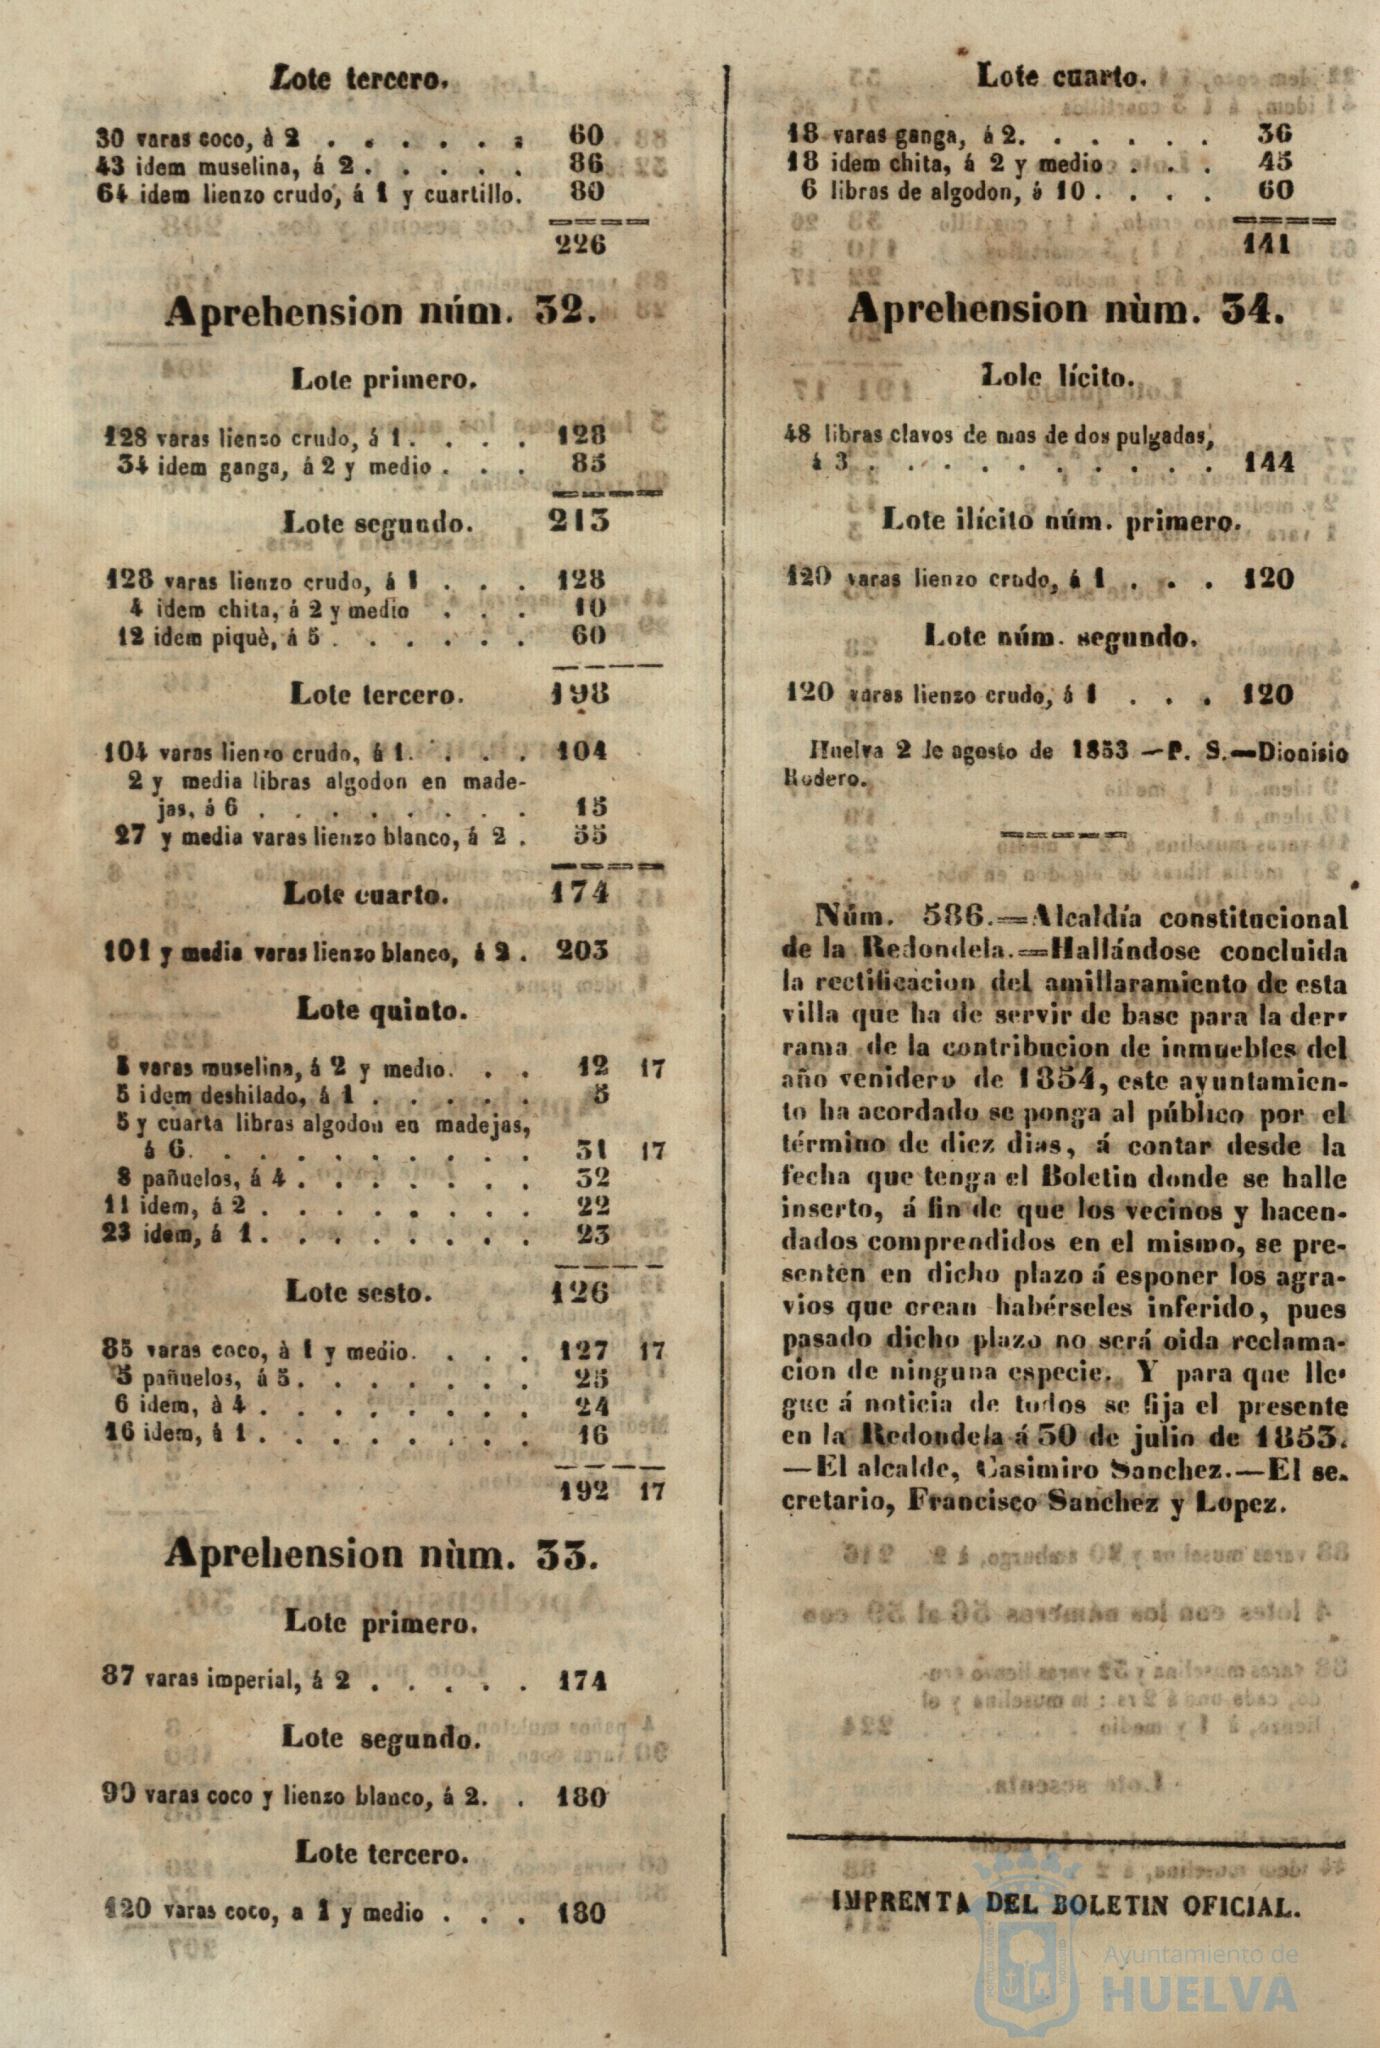 Lote tercero.
30 varas coco, à 2 . . . . . . 60
43 idem muselina, á 2 . . . . . 86
64 idem lienzo crudo, á 1 y cuartillo. 80
226
Aprehension núm. 32.
Lote primero.
128 varas lienzo crudo, á 1 . . . . 128
34 idem ganga, á 2 y medio . . . 85
Lote segundo. 213
128 varas lienzo crudo, á 1 . . . 128
4 idem chita, á 2 y medio . . . 10
12 idem piquè, á 5 . . . . . . 60
Lote tercero. 198
104 varas lienzo crudo, á 1 . . . . 104
2 y media libras algodon en made-
jas, á 6 . . . . . . . . 15
27 y media varas lienzo blanco, á 2 . 55
Lote cuarto. 174
101 y media varas lienzo blanco, á 2 . 203
Lote quinto.
5 varas muselina, á 2 y medio. . . 12 17
5 idem deshilado, á 1 . . . . . 5
5 y cuarta libras algodon en madejas,
á 6. . . . . . . . . . 31 17
8 pañuelos, á 4 . . . . . . . 32
11 idem, á 2 . . . . . . . . 22
23 idem, á 1 . . . . . . . . 23
Lote sesto. 126
85 varas coco, à 1 y medio. . . . 127 17
5 pañuelos, á 5. . . . . . . 25
6 idem, à 4 . . . . . . . . 24
16 idem, à 1 . . . . . . . . 16
192 17
Aprehension nùm. 33.
Lote primero.
87 varas imperial, á 2 . . . . . 174
Lote segundo.
90 varas coco y lienzo blanco, á 2. . 180
Lote tercero.
120 varas coco, a 1 y medio . . . 180
Lote cuarto.
18 varas ganga, á 2. . . . . . 36
18 idem chita, á 2 y medio . . . 45
6 libras de algodon, á 10 . . . . 60
141
Aprehension nùm. 34.
Lole lícito.
48 libras clavos de mas de dos pulgadas,
á 3 . . . . . . . . . . 144
Lote ilícito núm. primero.
120 varas lienzo crudo, á 1 . . . 120
Lote núm. segundo.
120 varas lienzo crudo, á 1 . . . 120
Huelva 2 de agosto de 1853 —P. S.=Dionisio
Rodero.
Núm. 586.=Alcaldía constitucional
de la Redondela.=Hallándose concluida
la rectificacion del amillaramiento de esta
villa que ha de servir de base para la der-
rama de la contribucion de inmuebles del
año venidero de 1854, este ayuntamien-
to ha acordado se ponga al público por el
término de diez dias, á contar desde la
fecha que tenga el Boletin donde se halle
inserto, á fin de que los vecinos y hacen-
dados comprendidos en el mismo, se pre-
senten en dicho plazo á esponer los agra-
vios que crean habérseles inferido, pues
pasado dicho plazo no será oida reclama-
cion de ninguna especie. Y para que lle-
gue á noticia de todos se fija el presente
en la Redondela á 30 de julio de 1853.
—El alcalde, Casimiro Sanchez.—El se-
cretario, Francisco Sanchez y Lopez.
IMPRENTA DEL BOLETIN OFICIAL.
Ayuntamiento de
HUELVA